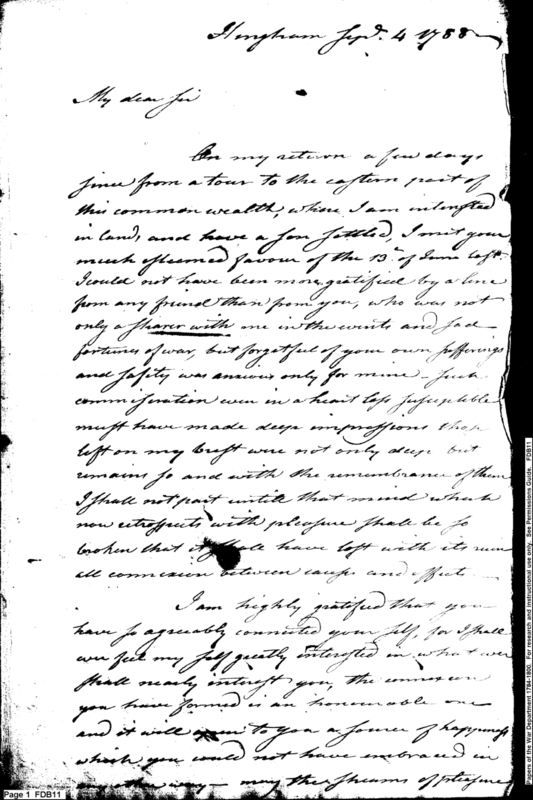 Hingham Sepr. 4 1788
My dear Sir
On my return a few days
since from a tour to the eastern part of
this common wealth, where I am interested
in land, and have a son settled, I met your
much esteemed favour of the 13th of June last
I could not have been more gratified by a line
from any friend than from you, who was not
only a sharer with me in the events and sad
fortunes of war, but forgetful of your own sufferings
and safety was anxious only for mine - such
commiseration even in a heart less susceptible
must have made deep impressions those
left on my brest were not only deep but
remains so and with the remembrance of them
I shall not part untill that mind which
now retrospects with pleasure shall be so
broken that it shall have lost with its ruin
all connexion between causes and effects
I am highly gratified that you
have so agreeably connected your self, for I shall
ever feel my self greatly interested in what ever
shall nearly interest you, the connexion
you have formed is an honourable one
and it will open to you a source of happiness
which you could not have embraced in
may the streams of pleasure
Page 1 FDB11
Papers of the War Department 1784-1800. For research and instructional use only. See Permissions Guide. FDB11